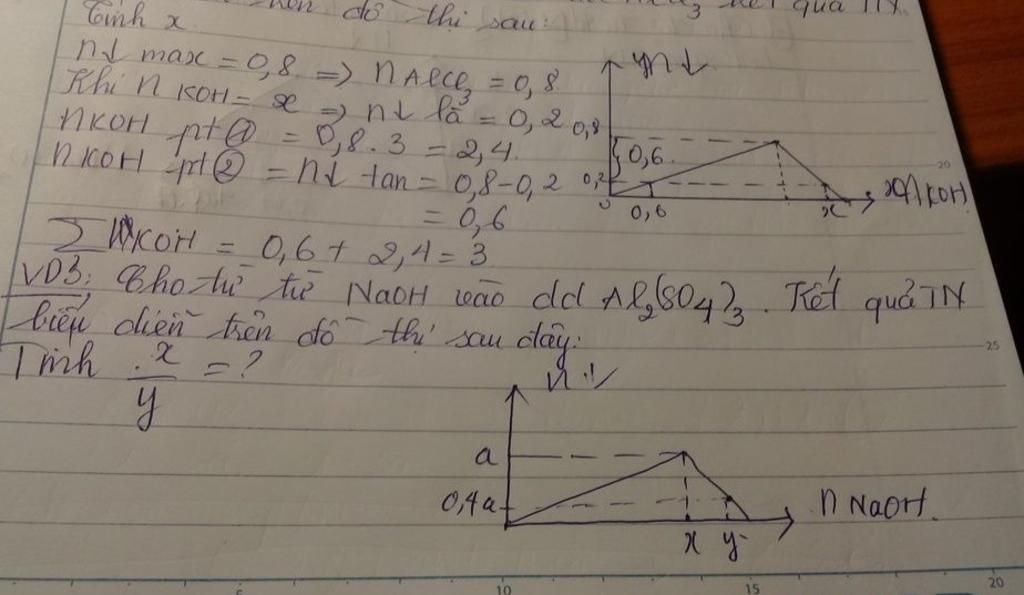 đồ thị sau: kết quả TN
Tính x
n↓ max = 0,8 => n AlCl₃ = 0,8
Khi n KOH = x => n↓ là = 0,2
nKOH pt① = 0,8.3 = 2,4
nKOH pt② = n↓ tan = 0,8-0,2
= 0,6
∑ nKOH = 0,6 + 2,4 = 3
n↓
0,8
0,6
0,2
0
0,6
x
nKOH
20
VD3: Cho từ từ NaOH vào dd Al₂(SO₄)₃. Kết quả TN
biểu diễn trên đồ thị sau đây:
25
Tính x/y = ?
n↓
a
0,4a
x y
n NaOH
10 15 20